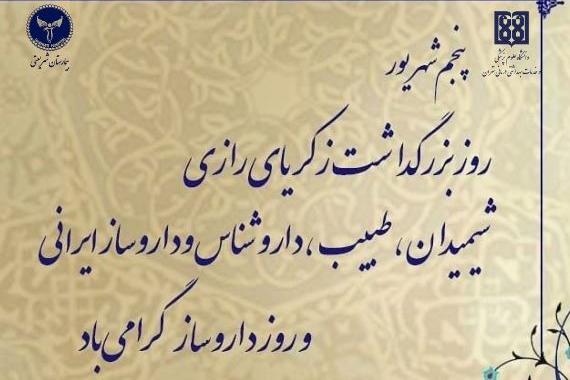 دانشگاه علوم پزشکی
و خدمات بهداشتی درمانی تهران
بیمارستان شریعتی
پنجم شهریور
روز بزرگداشت زکریای رازی
شیمیدان، طبیب، داروشناس و داروساز ایرانی
و روز داروساز گرامی باد